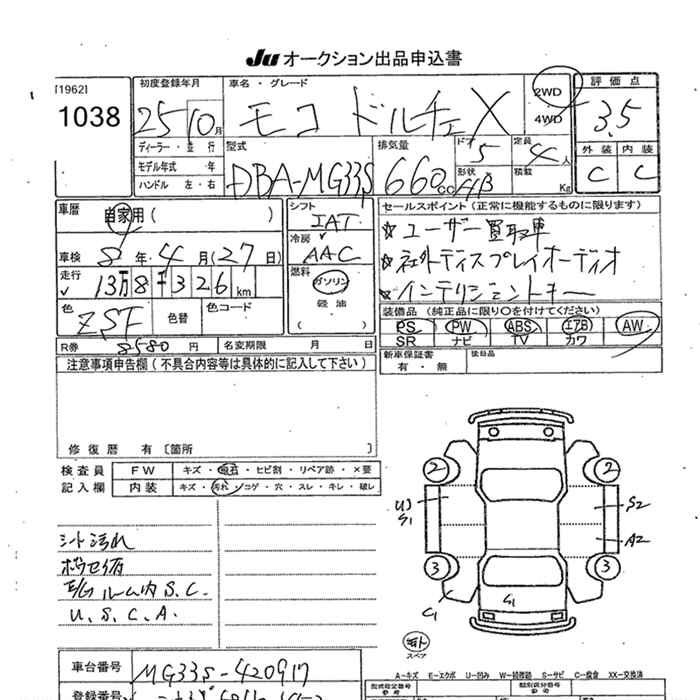 Ju オークション出品申込書
[1962]
1038
初度登録年月
25 10月
車名・グレード
モコ ドルチェX
2WD
4WD
評価点
3.5
外装 内装
C C
ディーラー・並行
モデル年式・年
ハンドル 左・右
型式
DBA-MG33S
排気量
660cc
ドア
5
定員
4人
形状
HB
積載
Kg
車歴
自家用( )
車検 8年4月(27日)
走行 13万8千326km
色
ZSF
色替
色コード
シフト
IAT
冷房
AAC
燃料
ガソリン
軽油
( )
セールスポイント(正常に機能するものに限ります)
☆ユーザー買取車
☆社外ディスプレイオーディオ
☆インテリジェントキー
装備品(純正品に限り○を付けてください)
PS PW ABS エアB AW
SR ナビ TV カワ
R券 8580円 名変期限 月 日
新車保証書
有・無
後日品
注意事項申告欄(不具合内容等は具体的に記入して下さい)
修復歴 有〔箇所 〕
検査員
記入欄
FW キズ・飛石・ヒビ割・リペア跡・×要
内装 キズ・汚れ・コゲ・穴・スレ・キレ・破レ
シート汚れ
E/Gルーム内S.C.
U.S.C.A.
2 2
U3 S1
S2
A2
3 3
C1
S1
スペア
A-キズ E-エクボ U-凹み W-補修跡 S-サビ C-腐食 XX-交換済
車台番号 MG33S-420917
登録番号
型式指定番号
類別区分番号